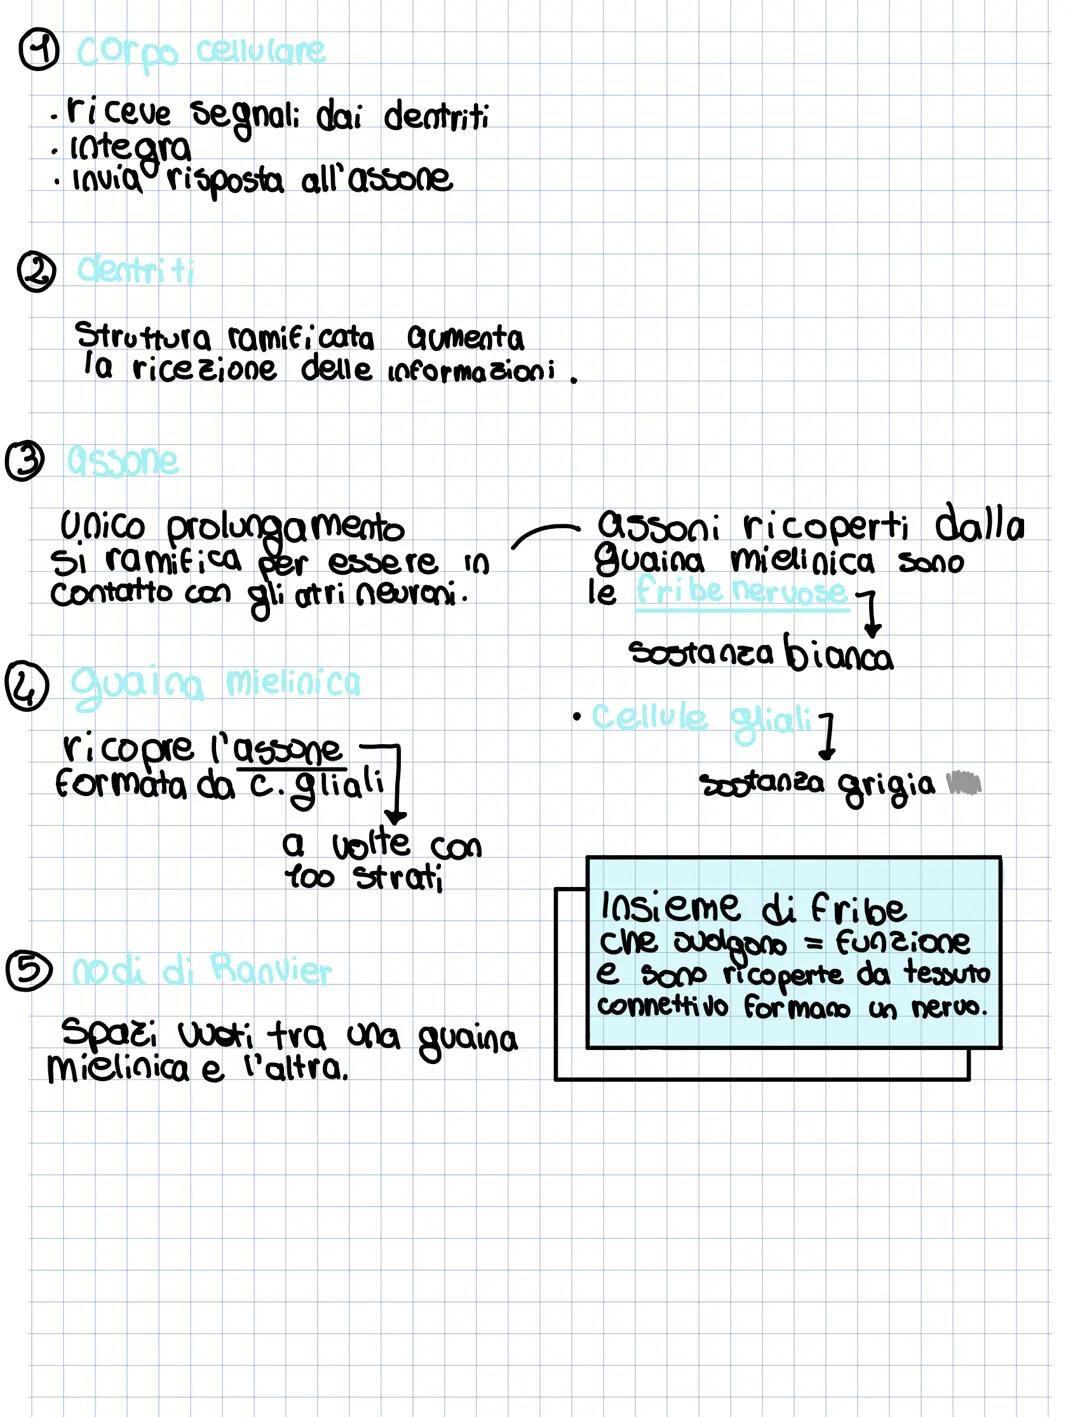 1 corpo cellulare
. riceve segnali dai dentriti
. integra
. invia risposta all'assone
2 dentriti
Struttura ramificata aumenta
la ricezione delle informazioni.
3 assone
Unico prolungamento
si ramifica per essere in
contatto con gli atri neuroni.
assoni ricoperti dalla
guaina mielinica sono
le fribe nervose
sostanza bianca
4 guaina mielinica
ricopre l'assone
formata da c. gliali
a volte con
100 strati
• Cellule gliali
sostanza grigia
Insieme di fribe
che svolgono = funzione
e sono ricoperte da tessuto
connettivo formano un nervo.
5 nodi di Ranvier
Spazi vuoti tra una guaina
mielinica e l'altra.